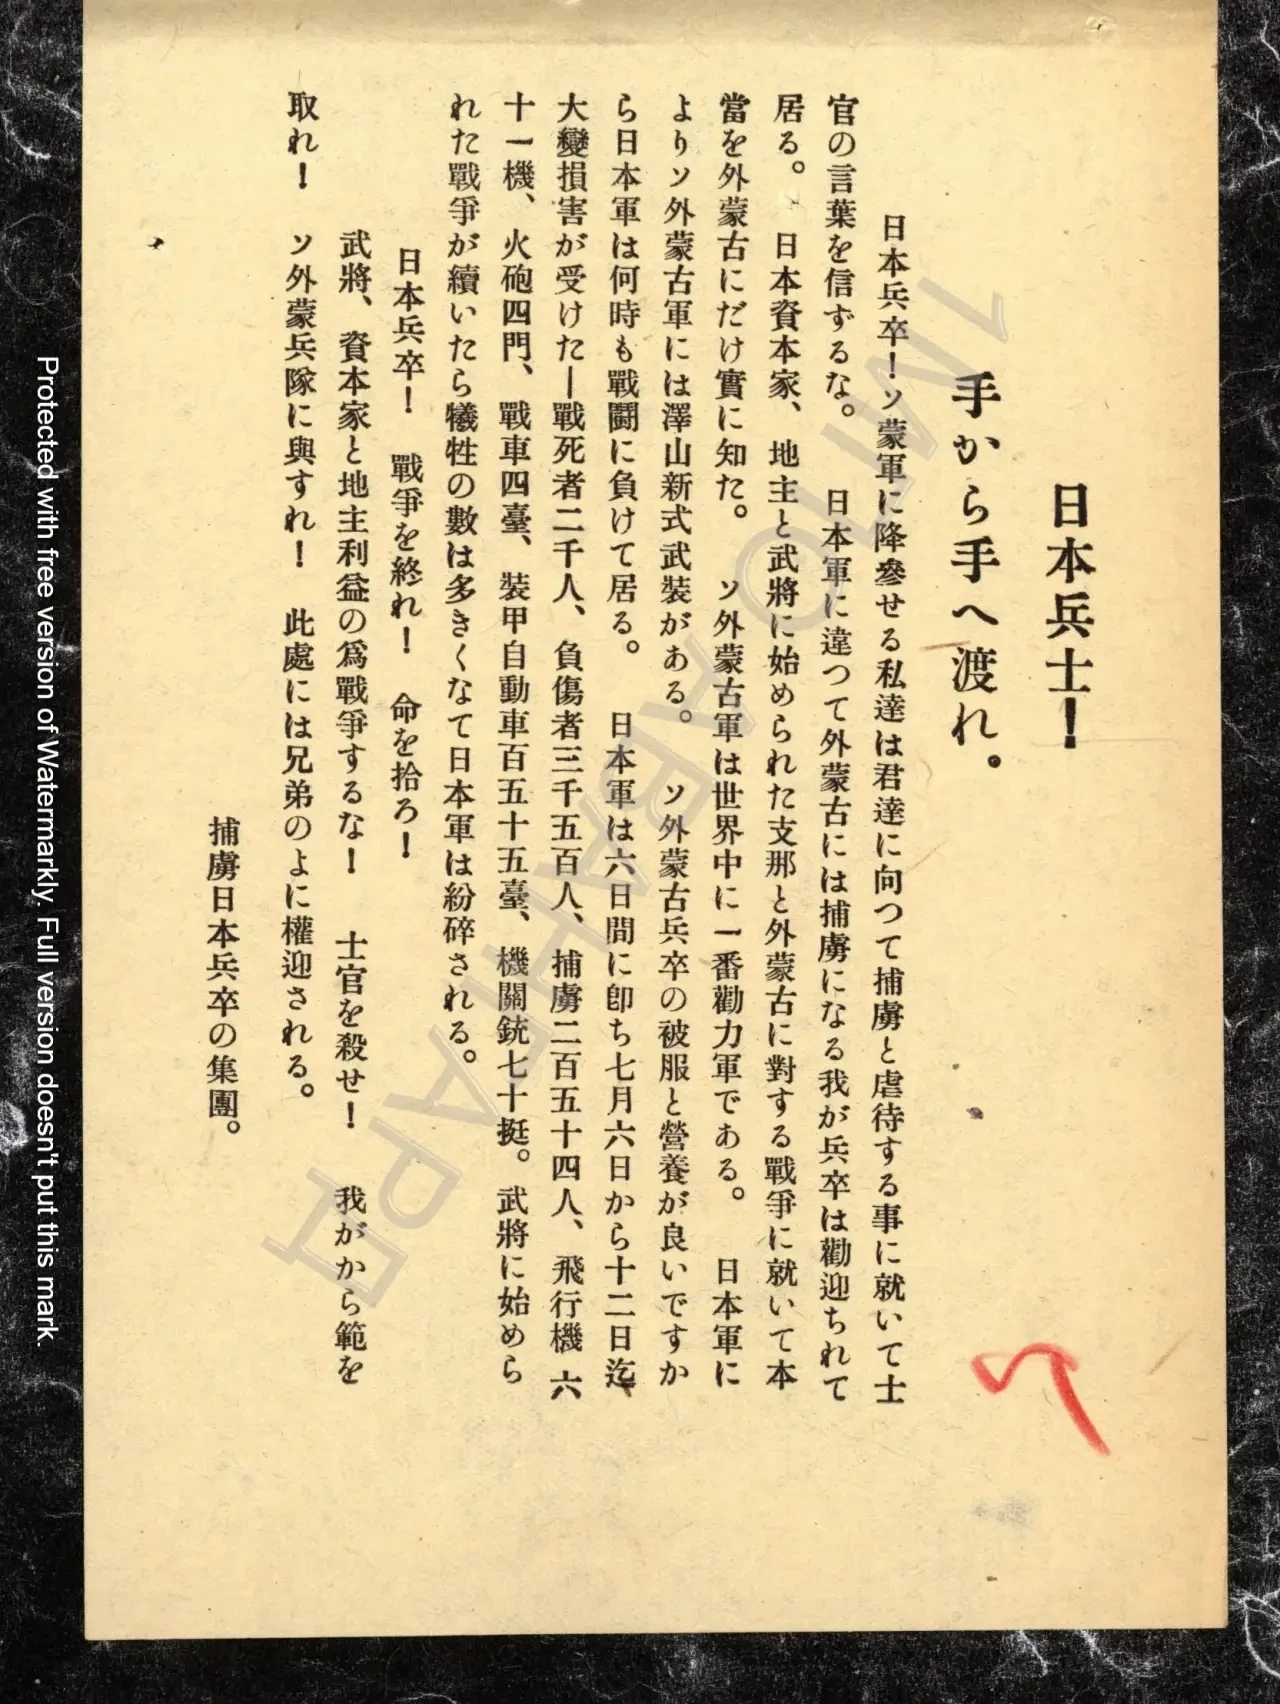 日本兵士！
手から手へ渡れ。
日本兵卒！ソ蒙軍に降參せる私達は君達に向つて捕虜と虐待する事に就いて士
官の言葉を信ずるな。 日本軍に違つて外蒙古には捕虜になる我が兵卒は勸迎ちれて
居る。 日本資本家、地主と武將に始められた支那と外蒙古に對する戰爭に就いて本
當を外蒙古にだけ實に知た。 ソ外蒙古軍は世界中に一番勸力軍である。 日本軍に
よりソ外蒙古軍には澤山新式武裝がある。 ソ外蒙古兵卒の被服と營養が良いですか
ら日本軍は何時も戰鬪に負けて居る。 日本軍は六日間に卽ち七月六日から十二日迄、
大變損害が受けた―戰死者二千人、負傷者三千五百人、捕虜二百五十四人、飛行機六
十一機、火砲四門、戰車四臺、裝甲自動車百五十五臺、機關銃七十挺。武將に始めら
れた戰爭が續いたら犧牲の數は多きくなて日本軍は紛碎される。
日本兵卒！ 戰爭を終れ！ 命を拾ろ！
武將、資本家と地主利益の爲戰爭するな！ 士官を殺せ！ 我がから範を
取れ！ ソ外蒙兵隊に與すれ！ 此處には兄弟のよに權迎される。
捕虜日本兵卒の集團。
1МТО АВАНГАРД
Protected with free version of Watermarkly. Full version doesn't put this mark.